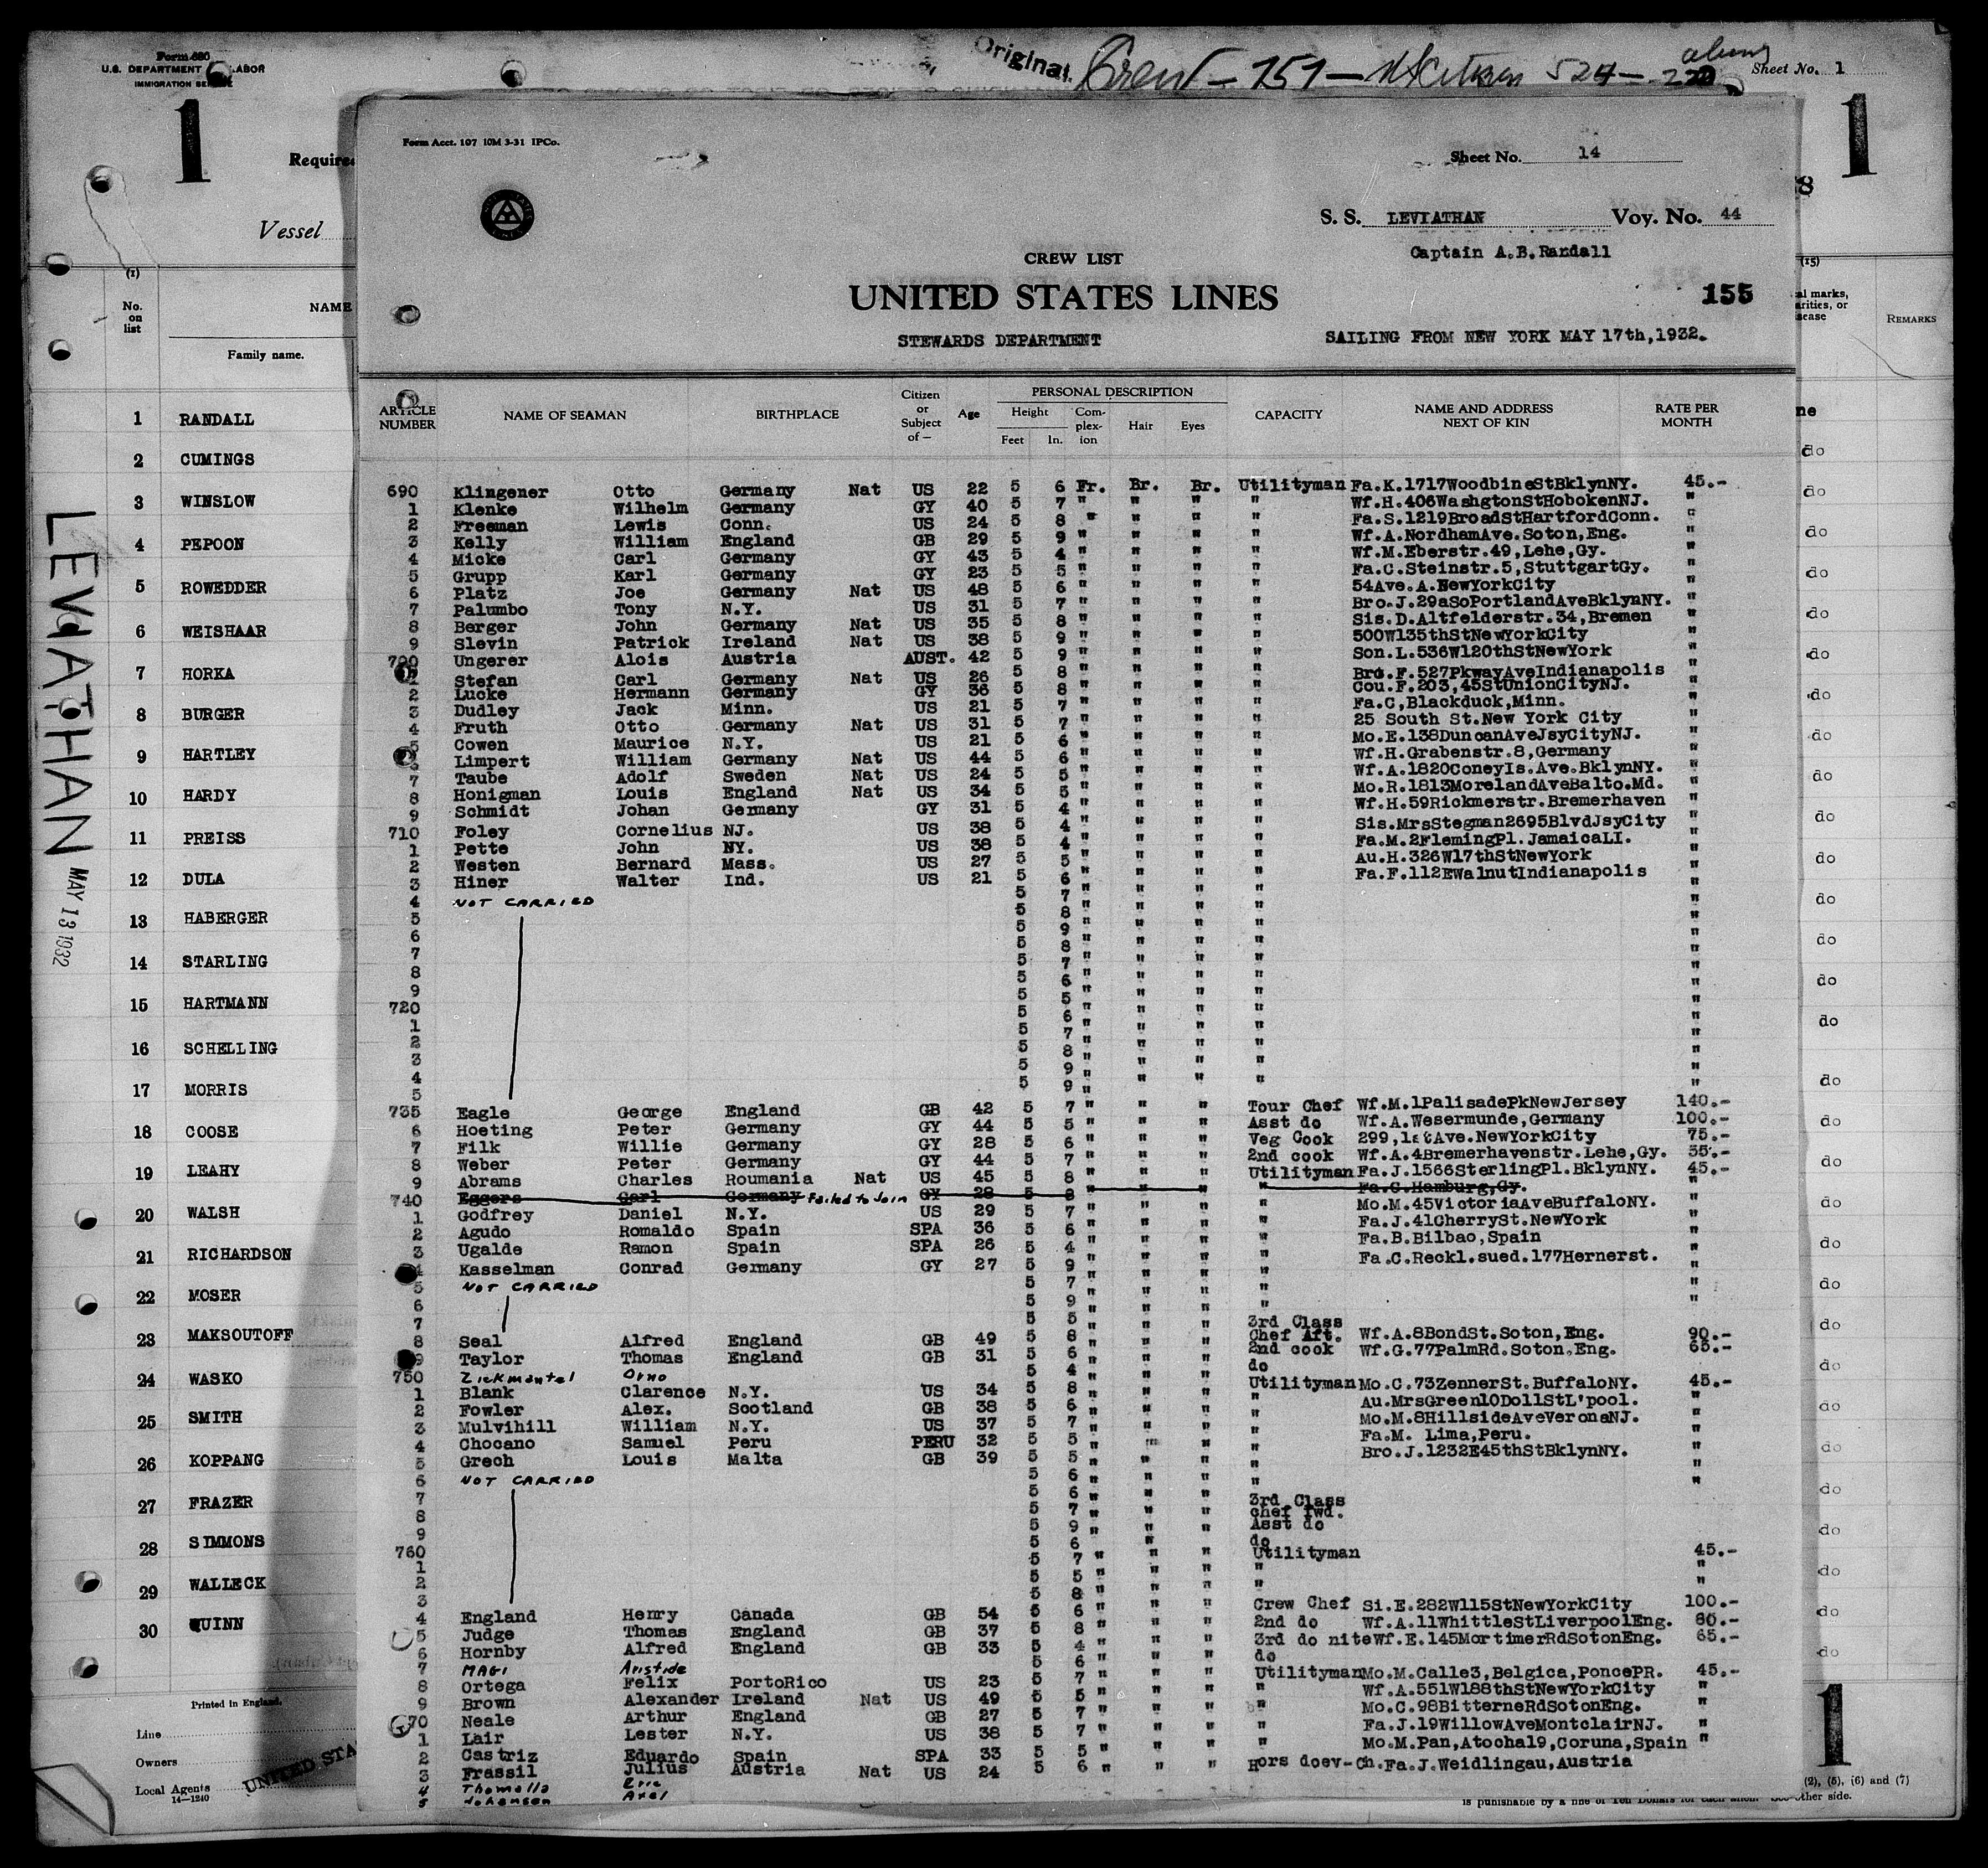 Form 680
U.S. DEPARTMENT LABOR
IMMIGRATION
Original Crew - 751 -
524 -
Sheet No. 1
1
1
Vessel
(1)
No. on list
NAME
Family name.
1 RANDALL
2 CUMINGS
3 WINSLOW
4 PEPOON
5 ROWEDDER
6 WEISHAAR
7 HORKA
8 BURGER
9 HARTLEY
10 HARDY
11 PREISS
12 DULA
13 HABERGER
14 STARLING
15 HARTMANN
16 SCHELLING
17 MORRIS
18 COOSE
19 LEAHY
20 WALSH
21 RICHARDSON
22 MOSER
23 MAKSOUTOFF
24 WASKO
25 SMITH
26 KOPPANG
27 FRAZER
28 SIMMONS
29 WALLECK
30 QUINN
Printed in England.
Line
Owners
Local Agents
14—1240
UNITED STA
LEVIATHAN
MAY 13 1932
Form Acct. 107 10M 3-31 IPCo.
Sheet No. 14
S. S. LEVIATHAN Voy. No. 44
Captain A.B.Randall
CREW LIST
UNITED STATES LINES
155
STEWARDS DEPARTMENT
SAILING FROM NEW YORK MAY 17th,1932.
ARTICLE NUMBER NAME OF SEAMAN BIRTHPLACE Citizen or Subject of — Age PERSONAL DESCRIPTION Height Feet In. Complexion Hair Eyes CAPACITY NAME AND ADDRESS NEXT OF KIN RATE PER MONTH
690 Klingener Otto Germany Nat US 22 5 6 Fr. Br. Br. Utilityman Fa.K.1717WoodbineStBklynNY. 45.-
1 Klenke Wilhelm Germany GY 40 5 7 " " " " Wf.H.406WashgtonStHobokenNJ. "
2 Freeman Lewis Conn. US 24 5 8 " " " " Fa.S.1219BroadStHartfordConn. "
3 Kelly William England GB 29 5 9 " " " " Wf.A.NordhamAve.Soton,Eng. "
4 Micke Carl Germany GY 43 5 4 " " " " Wf.M.Eberstr.49,Lehe,Gy. "
5 Grupp Karl Germany GY 23 5 5 " " " " Fa.C.Steinstr.5,StuttgartGy. "
6 Platz Joe Germany Nat US 48 5 6 " " " " 54Ave.A.NewYorkCity "
7 Palumbo Tony N.Y. US 31 5 7 " " " " Bro.J.29aSoPortlandAveBklynNY. "
8 Berger John Germany Nat US 35 5 8 " " " " Sis.D.Altfelderstr.34,Bremen "
9 Slevin Patrick Ireland Nat US 38 5 9 " " " " 500W135thStNewYorkCity "
700 Ungerer Alois Austria AUST. 42 5 9 " " " " Son.L.536W120thStNewYork "
1 Stefan Carl Germany Nat US 26 5 8 " " " " Bro.F.527PkwayAveIndianapolis "
2 Lucke Hermann Germany GY 36 5 8 " " " " Cou.F.203,45StUnionCityNJ. "
3 Dudley Jack Minn. US 21 5 7 " " " " Fa.C,Blackduck,Minn. "
4 Fruth Otto Germany Nat US 31 5 7 " " " " 25 South St.New York City "
5 Cowen Maurice N.Y. US 21 5 6 " " " " Mo.E.138DuncanAveJsyCityNJ. "
6 Limpert William Germany Nat US 44 5 6 " " " " Wf.H.Grabenstr.8,Germany "
7 Taube Adolf Sweden Nat US 24 5 5 " " " " Wf.A.1820ConeyIs.Ave.BklynNY. "
8 Honigman Louis England Nat US 34 5 5 " " " " Mo.R.1813MorelandAveBalto.Md. "
9 Schmidt Johan Germany GY 31 5 4 " " " " Wf.H.59Rickmerstr.Bremerhaven "
710 Foley Cornelius NJ. US 38 5 4 " " " " Sis.MrsStegman2695BlvdJsyCity "
1 Pette John NY. US 38 5 4 " " " " Fa.M.2FlemingPl.JamaicaLI. "
2 Westen Bernard Mass. US 27 5 5 " " " " Au.H.326W17thStNewYork "
3 Hiner Walter Ind. US 21 5 6 " " " " Fa.F.112EWalnutIndianapolis "
4 NOT CARRIED 5 7 " " " " "
5 5 8 " " " " "
6 5 9 " " " " "
7 5 8 " " " " "
8 5 7 " " " " "
9 5 6 " " " " "
720 5 5 " " " " "
1 5 6 " " " " "
2 5 7 " " " " "
3 5 8 " " " " "
4 5 9 " " " " "
5 5 9 " " " " "
735 Eagle George England GB 42 5 7 " " " Tour Chef Wf.M.1PalisadePkNewJersey 140.-
6 Hoeting Peter Germany GY 44 5 5 " " " Asst do Wf.A.Wesermunde,Germany 100.-
7 Filk Willie Germany GY 28 5 6 " " " Veg Cook 299,1stAve.NewYorkCity 75.-
8 Weber Peter Germany GY 44 5 7 " " " 2nd cook Wf.A.4Bremerhavenstr.Lehe,Gy. 55.-
9 Abrams Charles Roumania Nat US 45 5 8 " " " Utilityman Fa.J.1566SterlingPl.BklynNY. 45.-
740 Eggers Carl Germany Failed to Join GY 28 5 8 " " " " Fa.C.Hamburg,Gy.
1 Godfrey Daniel N.Y. US 29 5 7 " " " " Mo.M.45VictoriaAveBuffaloNY. "
2 Agudo Romaldo Spain SPA 36 5 6 " " " " Fa.J.41CherrySt.NewYork "
3 Ugalde Ramon Spain SPA 26 5 4 " " " " Fa.B.Bilbao,Spain "
4 Kasselman Conrad Germany GY 27 5 9 " " " " Fa.C.Reckl.sued.177Hernerst. "
5 NOT CARRIED 5 7 " " " " "
6 5 9 " " " " "
7 5 5 " " " 3rd Class
8 Seal Alfred England GB 49 5 8 " " " Chef Aft. Wf.A.8BondSt.Soton,Eng. 90.-
9 Taylor Thomas England GB 31 5 6 " " " 2nd cook Wf.G.77PalmRd.Soton.Eng. 65.-
750 Zickmantel Orno 5 4 " " " do
1 Blank Clarence N.Y. US 34 5 8 " " " Utilityman Mo.C.73ZennerSt.BuffaloNY. 45.-
2 Fowler Alex. Scotland GB 38 5 6 " " " " Au.MrsGreen10DollStL'pool. "
3 Mulvihill William N.Y. US 37 5 7 " " " " Mo.M.8HillsideAveVeronaNJ. "
4 Chocano Samuel Peru PERU 32 5 5 " " " " Fa.M. Lima,Peru. "
5 Grech Louis Malta GB 39 5 5 " " " " Bro.J.1232E45thStBklynNY. "
6 NOT CARRIED 5 6 " " " " "
7 5 6 " " " 3rd Class
8 5 7 " " " chef fwd.
9 5 9 " " " Asst do
760 5 6 " " " do
1 5 7 " " " Utilityman 45.-
2 5 5 " " " " "
3 5 8 " " " " "
4 England Henry Canada GB 54 5 6 " " " Crew Chef Si.E.282W115StNewYorkCity 100.-
5 Judge Thomas England GB 37 5 8 " " " 2nd do Wf.A.11WhittleStLiverpoolEng. 80.-
6 Hornby Alfred England GB 33 5 4 " " " 3rd do nite Wf.E.145MortimerRdSotonEng. 65.-
7 MAGI Aristide 5 6 " " " do
8 Ortega Felix PortoRico US 23 5 7 " " " Utilityman Mo.M.Calle3,Belgica,PoncePR. 45.-
9 Brown Alexander Ireland Nat US 49 5 5 " " " " Wf.A.551W188thStNewYorkCity "
70 Neale Arthur England GB 27 5 7 " " " " Mo.C.98BitterneRdSotonEng. "
1 Lair Lester N.Y. US 38 5 7 " " " " Fa.J.19WillowAveMontclairNJ. "
2 Castriz Eduardo Spain SPA 33 5 5 " " " " Mo.M.Pan,Atocha19,Coruna,Spain "
3 Frassil Julius Austria Nat US 24 5 6 " " " Hors doev-Ch. Fa.J.Weidlingau,Austria
4 Thomella Eric
5 Johansen Axel
(15)
REMARKS
do
do
do
do
do
do
do
do
do
do
do
do
do
do
do
do
do
do
do
do
do
do
do
do
do
do
do
do
do
1
(2), (5), (6) and (7)
is punishable by a fine of Ten Dollars for each alien. See other side.